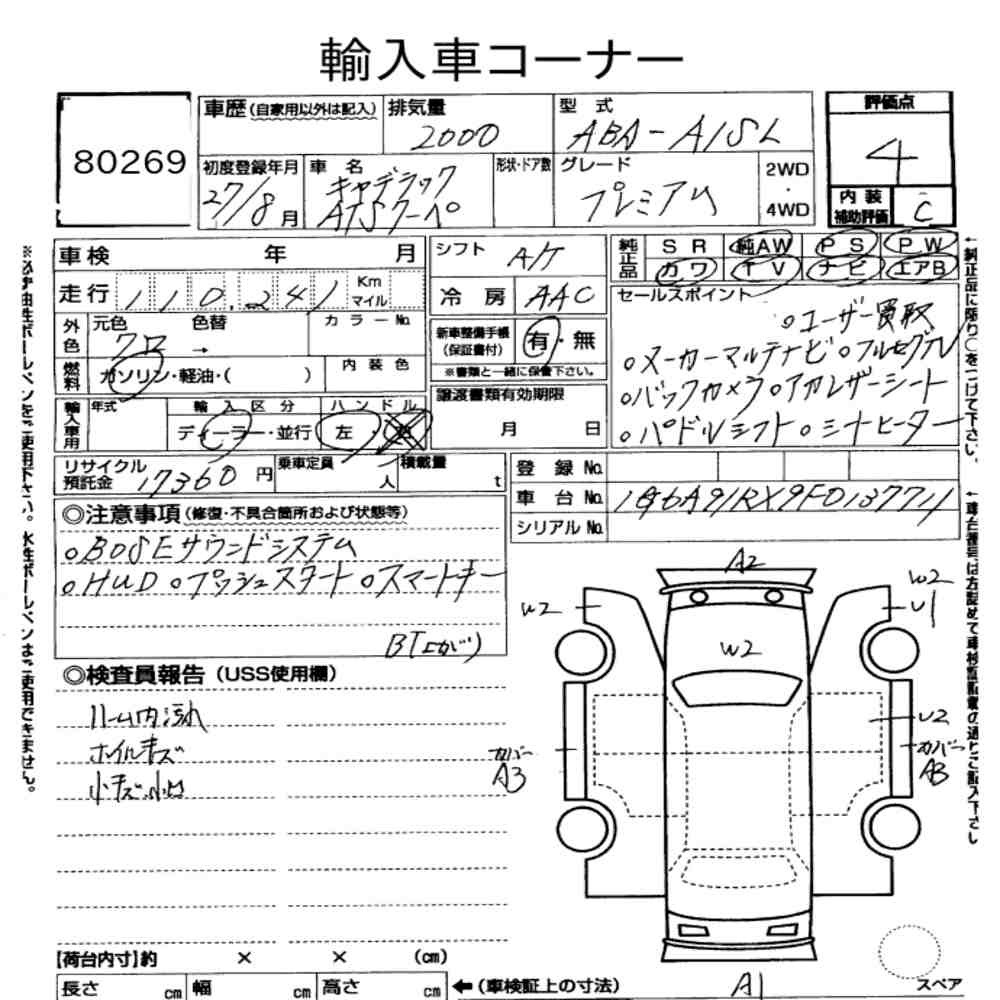 輸入車コーナー
80269
車歴(自家用以外は記入) 排気量 2000 型式 ABA-A1SL 評価点 4
初度登録年月 27/8月 車名 キャデラック ATSクーペ 形状・ドア数 グレード プレミアム 2WD・4WD 内装補助評価 C
車検 年 月 シフト A/T 純正品 SR 純AW PS PW
カワ TV ナビ エアB
走行 110,241 Km マイル 冷房 AAC セールスポイント
外色 元色 クロ 色替 → カラーNo. 新車整備手帳(保証書付) 有・無
※書類と一緒に保管下さい。
燃料 ガソリン・軽油・( ) 内装色
輸入車用 年式 輸入区分 ディーラー・並行 ハンドル 左・右 譲渡書類有効期限 月 日
。ユーザー買取
。メーカーマルチナビ 。フルセグTV
。バックカメラ 。アカレザーシート
。パドルシフト 。シートヒーター
リサイクル預託金 17360円 乗車定員 人 積載量 t
登録No.
車台No. 1G6A91RX9F0137711
シリアルNo.
◎注意事項(修復・不具合箇所および状態等)
。BOSEサウンドシステム
。HUD 。プッシュスタート 。スマートキー
BT上がり
◎検査員報告(USS使用欄)
ルーム内汚れ
ホイルキズ
小キズ・小凹
A2
W2
W2
U1
W2
U2
カバー A3
カバー A3
A1
スペア
【荷台内寸】約 × × (cm)
長さ cm 幅 cm 高さ cm ←(車検証上の寸法)
※必ず油性ボールペンをご使用下さい。水性ボールペンはご使用できません。
←純正品に限り○をつけて下さい。
←車台番号は左詰めで車検証記載の通りご記入下さい